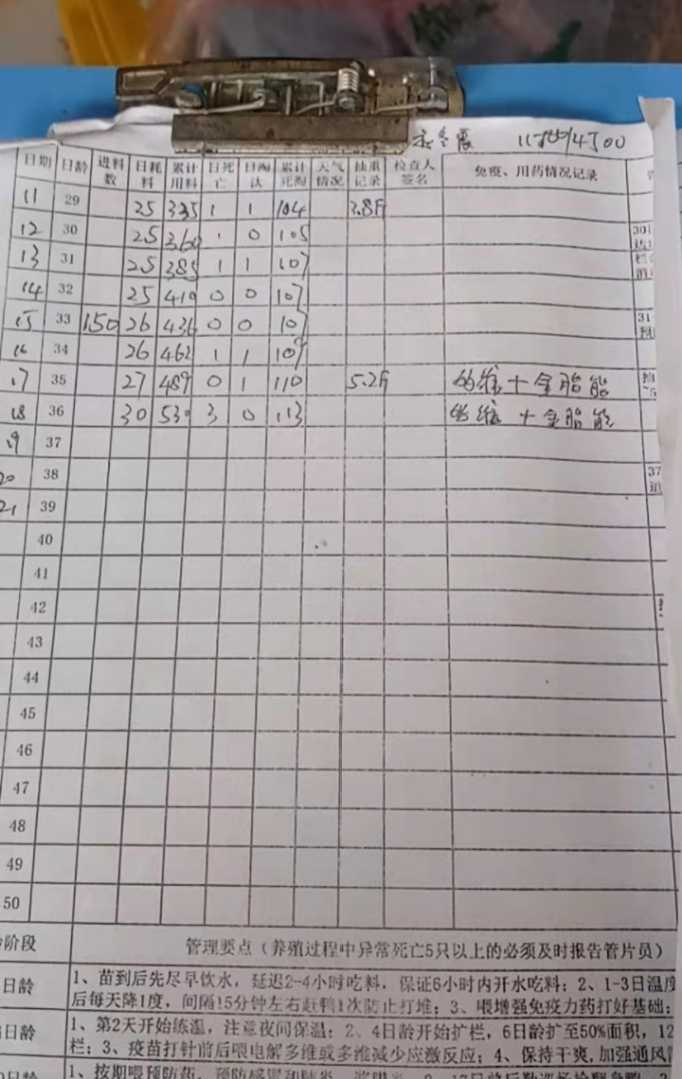 4500
日期 日龄 进料数 日耗料 累计用料 日死亡 日淘汰 累计死淘 天气情况 抽重记录 检查人签名 免疫、用药情况记录
11 29 25 335 1 1 104 3.8斤
12 30 25 360 1 0 105
13 31 25 385 1 1 107
14 32 25 410 0 0 107
15 33 150 26 436 0 0 107
16 34 26 462 1 1 109
17 35 27 489 0 1 110 5.2斤
18 36 30 530 3 0 113
19 37
20 38
21 39
40
41
42
43
44
45
46
47
48
49
50
阶段 管理要点（养殖过程中异常死亡5只以上的必须及时报告管片员）
日龄 1、苗到后先尽早饮水，延迟2-4小时吃料，保证6小时内开水吃料；2、1-3日温度
后每天降1度，间隔15分钟左右赶鸭1次防止打堆；3、喂增强免疫力药打好基础；
日龄 1、第2天开始练温，注意夜间保温；2、4日龄开始扩栏，6日龄扩至50%面积，12
栏；3、疫苗打针前后喂电解多维或多维减少应激反应；4、保持干爽，加强通风
1、按期喂预防药，预防感冒和肺炎